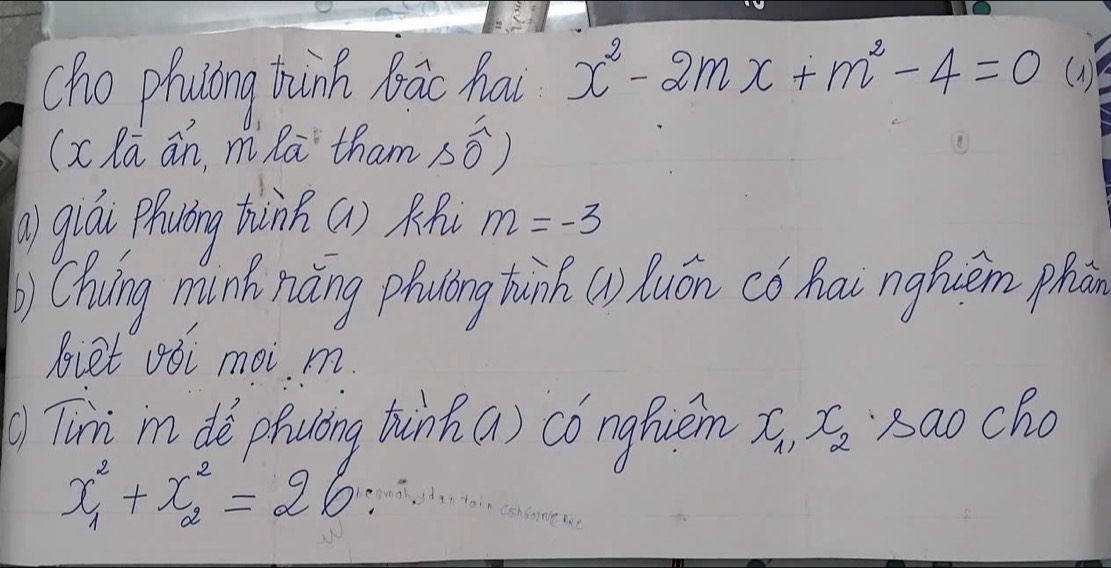 Cho phương trình bậc hai: x² - 2mx + m² - 4 = 0 (1)
(x là ẩn, m là tham số)
a) giải phương trình (1) khi m = -3
b) Chứng minh rằng phương trình (1) luôn có hai nghiệm phân
biệt với mọi m.
c) Tìm m để phương trình (1) có nghiệm x₁, x₂ sao cho
x₁² + x₂² = 26.